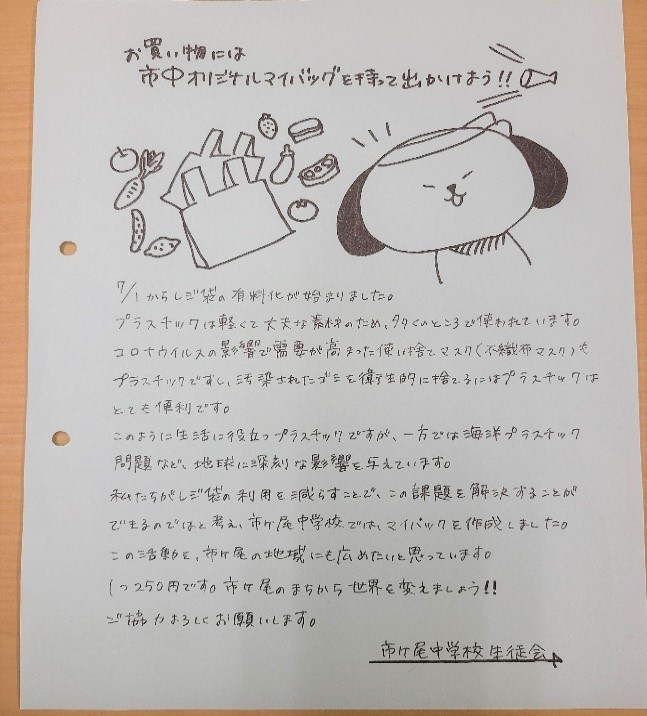 お買い物には
市中オリジナルマイバッグを持って出かけよう!!
7/1からレジ袋の有料化が始まりました。
プラスチックは軽くて丈夫な素材のため、多くのところで使われています。
コロナウイルスの影響で需要が高まった使い捨てマスク(不織布マスク)も
プラスチックですし、汚染されたゴミを衛生的に捨てるにはプラスチックは
とても便利です。
このように生活に役立つプラスチックですが、一方では海洋プラスチック
問題など、地球に深刻な影響を与えています。
私たちがレジ袋の利用を減らすことで、この課題を解決することが
できるのではと考え、市ケ尾中学校では、マイバックを作成しました。
この活動を、市ケ尾の地域にも広めたいと思っています。
1つ250円です。市ケ尾のまちから世界を変えましょう!!
ご協力よろしくお願いします。
市ケ尾中学校生徒会